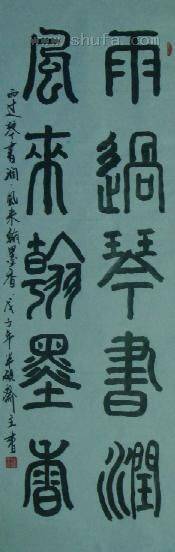 雨過琴書潤
風來翰墨香
雨过琴书润·风来翰墨香·戊子年半砚斋主书
www.shufa.com